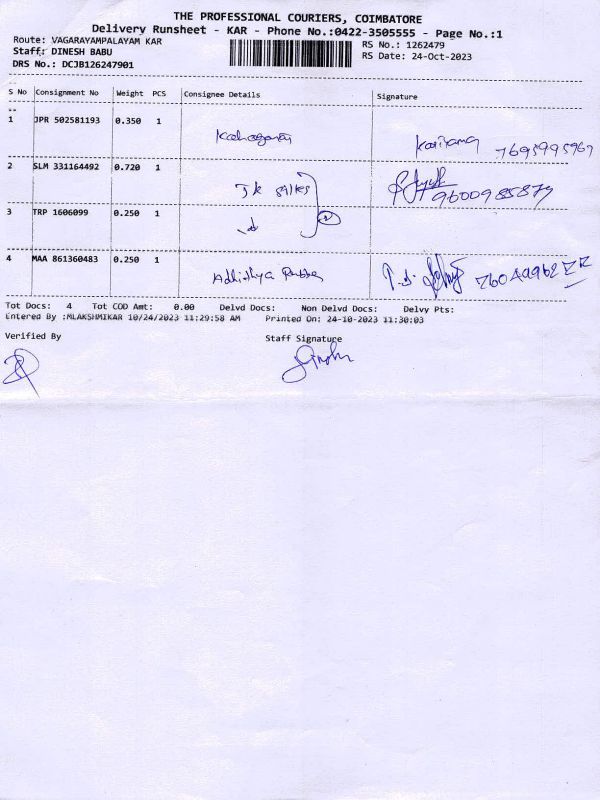 THE PROFESSIONAL COURIERS, COIMBATORE
Delivery Runsheet - KAR - Phone No.:0422-3505555 - Page No.:1
Route: VAGARAYAMPALAYAM KAR
RS No.: 1262479
Staff: DINESH BABU
RS Date: 24-Oct-2023
DRS No.: DCJB126247901
S No Consignment No Weight PCS Consignee Details Signature
1 JPR 502581193 0.350 1
2 SLM 331164492 0.720 1 JK silks 9600985879
3 TRP 1606099 0.250 1
4 MAA 861360483 0.250 1
Tot Docs: 4 Tot COD Amt: 0.00 Delvd Docs: Non Delvd Docs: Delvy Pts:
Entered By :MLAKSHMIKAR 10/24/2023 11:29:58 AM Printed On: 24-10-2023 11:30:03
Verified By Staff Signature